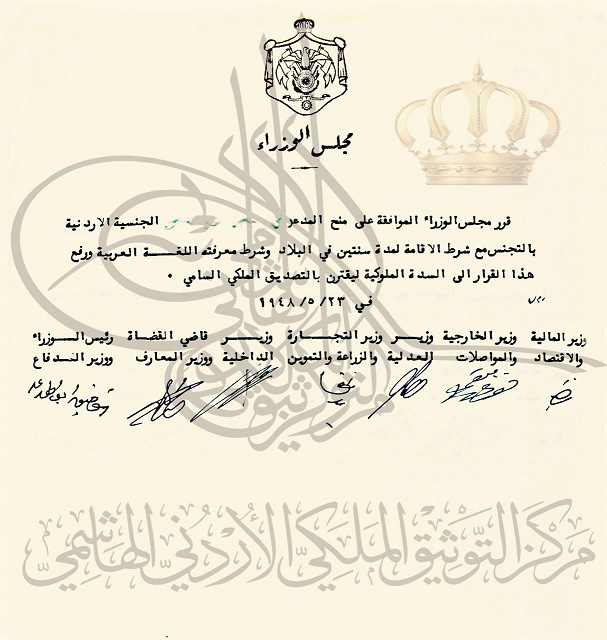 مجلس الوزراء
قرر مجلس الوزراء الموافقة على منح المدعو الجنسية الاردنية
بالتجنس مع شرط الاقامة لمدة سنتين في البلاد وشرط معرفته اللغة العربية ورفع
هذا القرار الى السدة الملوكية ليقترن بالتصديق الملكي السامي .
في ٢٣/٥/١٩٤٨
وزير المالية وزير الخارجية وزير وزير التجارة وزير قاضي القضاة رئيس الوزراء
والاقتصاد والمواصلات العدلية والزراعة والتموين الداخلية ووزير المعارف ووزير الدفاع
توفيق ابو الهدى
مركز التوثيق الملكي الأردني الهاشمي